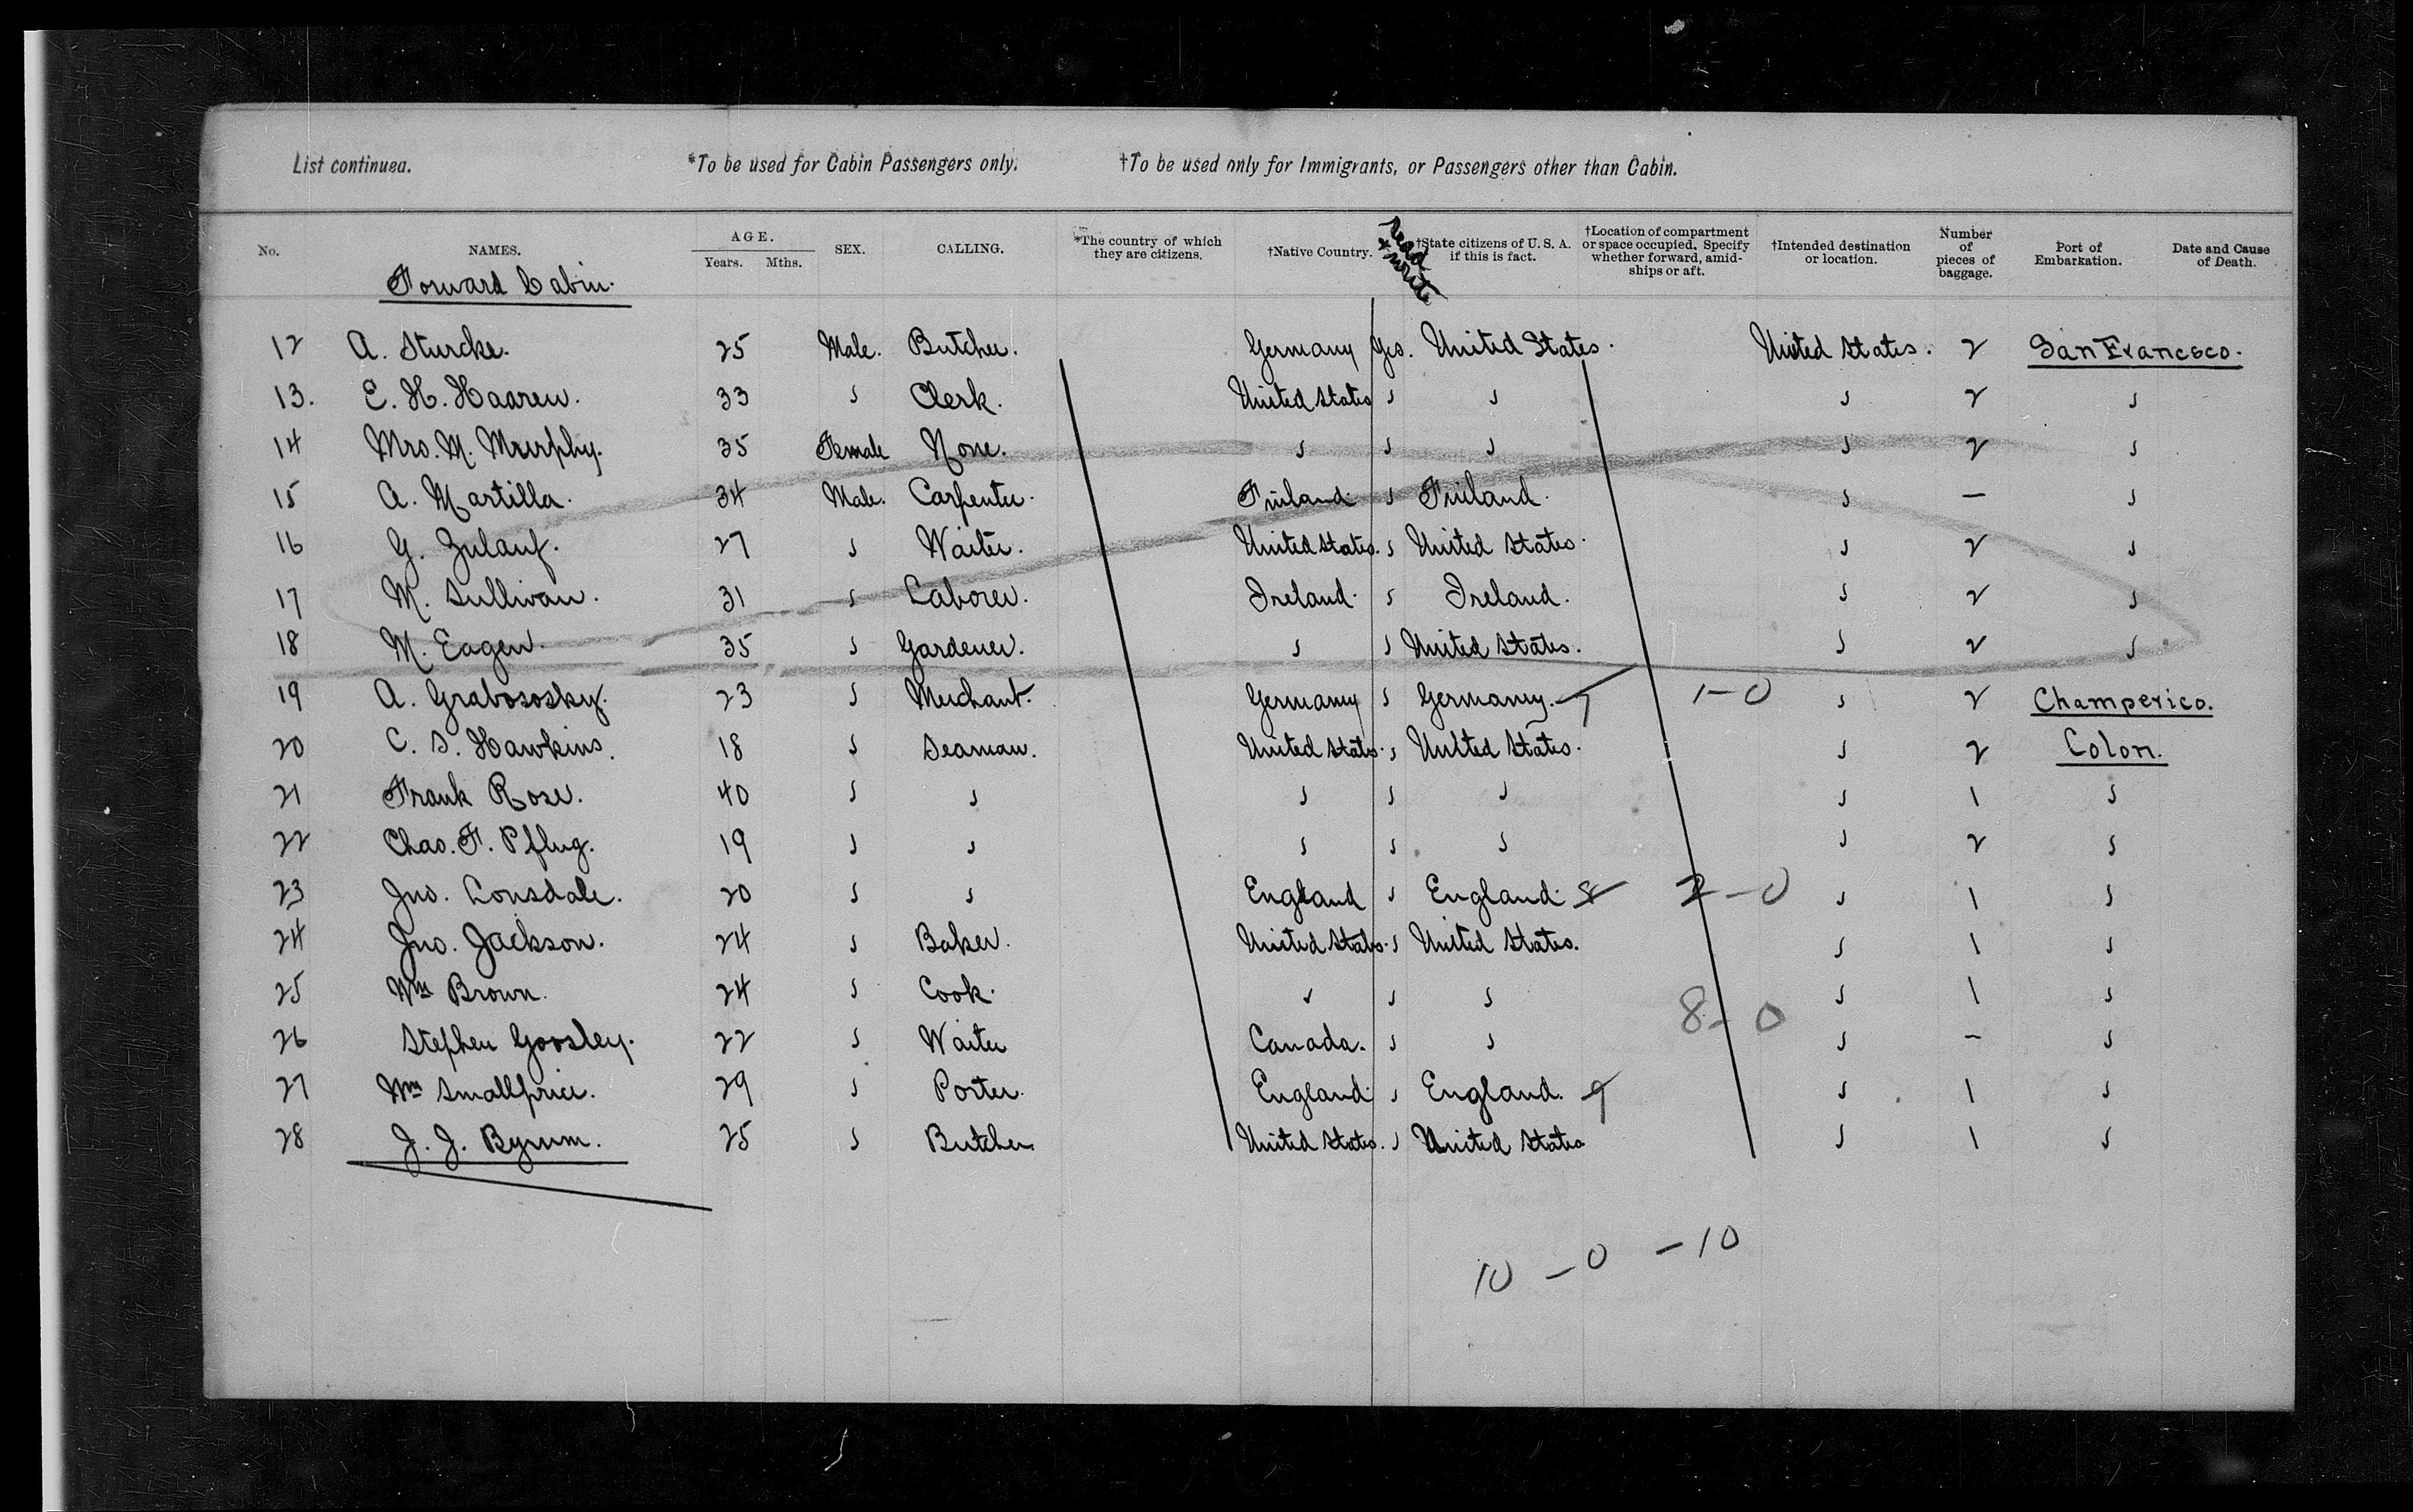 List continued. *To be used for Cabin Passengers only. †To be used only for Immigrants, or Passengers other than Cabin.
No. NAMES. AGE. Years. Mths. SEX. CALLING. *The country of which they are citizens. †Native Country. Read & write †State citizens of U. S. A. if this is fact. †Location of compartment or space occupied. Specify whether forward, amidships or aft. †Intended destination or location. Number of pieces of baggage. Port of Embarkation. Date and Cause of Death.
Forward Cabin.
12 A. Sturcke. 25 Male. Butcher. Germany Yes. United States. United States. 2 San Francesco.
13. E. H. Haaren. 33 " Clerk. United States " " " 2 "
14 Mrs. M. Murphy. 35 Female None. " " " " 2 "
15 A. Martilla. 34 Male. Carpenter. Finland " Finland. " — "
16 G. Zulauf. 27 " Waiter. United States. " United States. " 2 "
17 M. Sullivan. 31 " Laborer. Ireland. " Ireland. " 2 "
18 M. Eagen. 35 " Gardener. " " United States. " 2 "
19 A. Grabososky. 23 " Merchant. Germany " Germany. 1-0 " 2 Champerico.
20 C. S. Hawkins. 18 " Seaman. United States. " United States. " 2 Colon.
21 Frank Rose. 40 " " " " " " 1 "
22 Chas. F. Pflug. 19 " " " " " " 2 "
23 Jno. Lonsdale. 20 " " England " England. 2-0 " 1 "
24 Jno. Jackson. 24 " Baker. United States. " United States. " 1 "
25 Wm Brown. 24 " Cook. " " " " 1 "
8-0
26 Stephen Goosley. 22 " Waiter Canada. " " " — "
27 Wm Smallprice. 29 " Porter. England " England. " 1 "
28 J. J. Byrum. 25 " Butcher. United States. " United States " 1 "
10 - 0 - 10